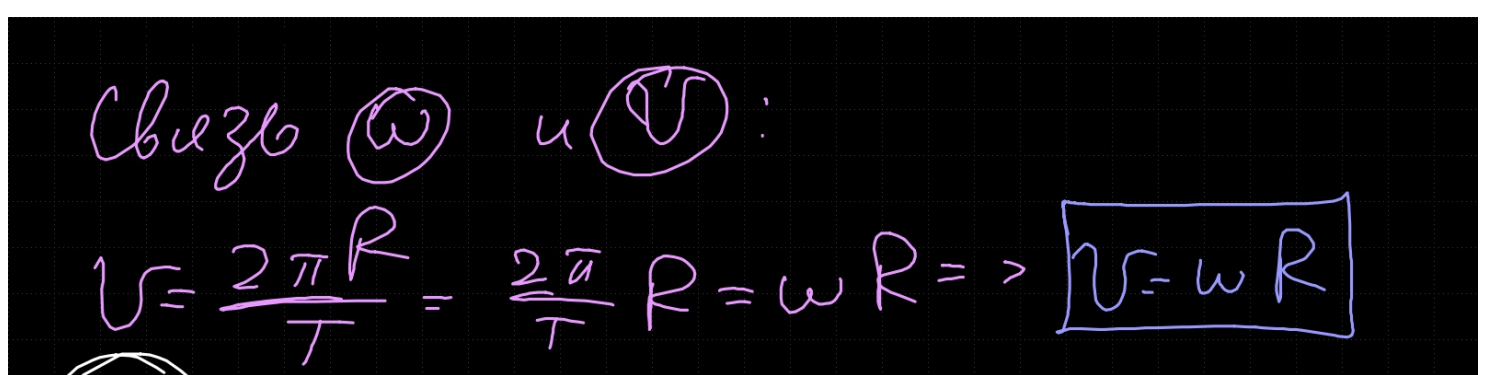 Связь ω и V:
V = 2πR/T = 2π/T R = ωR => V = ωR